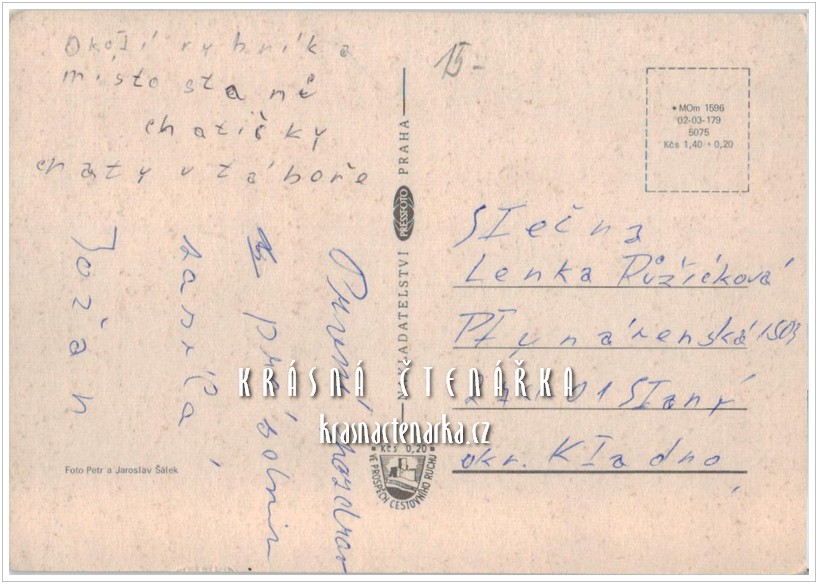 okolí rybníka
místo staně
chatičky
chaty v táboře
První pozdrav
prázdnin
zasílá
Jožan
15-
MOm 1596
02-03-179
5075
Kčs 1,40 + 0,20
NAKLADATELSTVÍ PRESSFOTO PRAHA
Slečna
Lenka Růžičková
Plynárenská 1503
01 Slaný
okr. Kladno
KRÁSNÁ ČTENÁŘKA
krasnactenarka.cz
Kčs 0,20
VE PROSPĚCH CESTOVNÍHO RUCHU
Foto Petr a Jaroslav Šálek